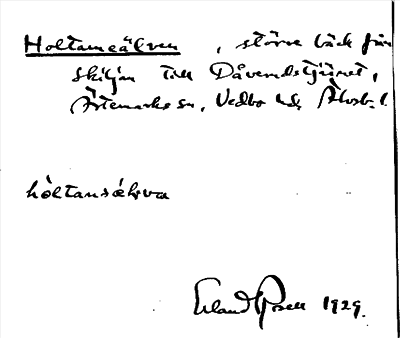 Holtaneälven, större bäck från
Skiljan till Dåvendstjärnet,
Ärtemarks sn, Vedbo hd, Älvsb. l.
hòltansǽlva
Erland Rosell 1929.